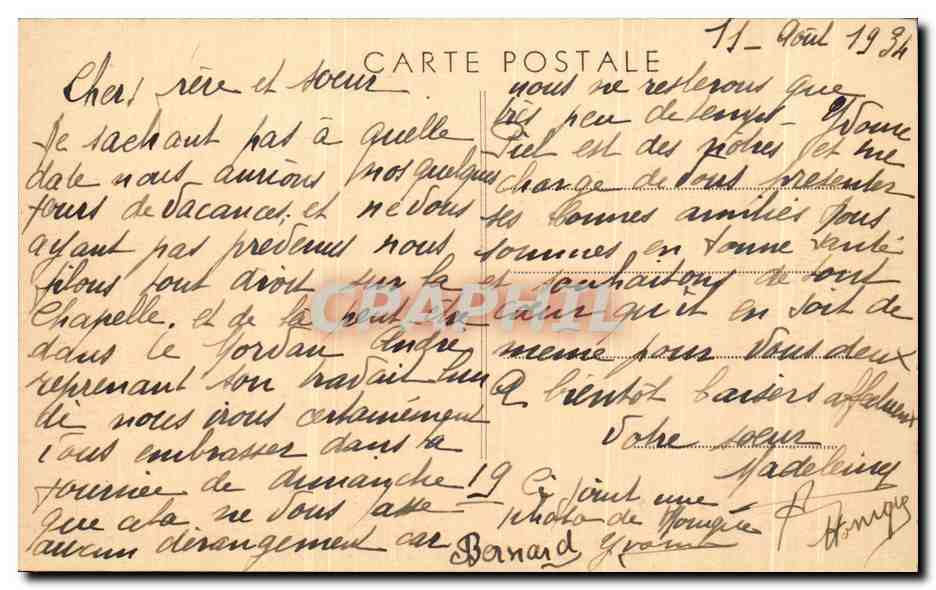 11 - Août 1934
CARTE POSTALE
Chers frère et soeur
Ne sachant pas à quelle
date nous aurions nos quelques
jours de vacances, et ne vous
ayant pas prévenus nous
filons tout droit sur la
Chapelle, et de là peut être
dans le André
reprenant son travail lun
di nous irons certainement
vous embrasser dans la
journée de dimanche 19
que cela ne vous fasse
aucun dérangement car
nous ne resterons que
très peu de temps - Yvonne
Piel est des nôtres et me
charge de vous présenter
ses bonnes amitiés Nous
sommes en bonne santé
et souhaitons de tout
coeur qu'il en soit de
même pour vous deux
A bientôt baisers affectueux
Votre soeur
Madeleine
Ci joint une
photo de
Bernard Yvonne
CPAPHIL